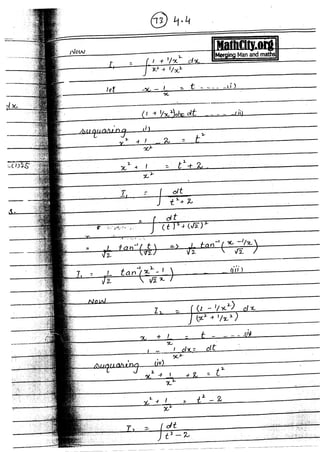 73 4.4
MathCity.org
Merging Man and maths
Now
I₁ = ∫ (1 + 1/x²) / (x² + 1/x²) dx
let x - 1/x = t ---- i)
(1 + 1/x²) dx = dt ---- ii)
dx
suquaring i)
x² + 1/x² - 2 = t²
x² + 1/x² = t² + 2
I₁ = ∫ dt / (t² + 2)
s.
= ∫ dt / ((t)² + (√2)²)
= 1/√2 tan⁻¹(t/√2) => 1/√2 tan⁻¹((x - 1/x)/√2)
I₁ = 1/√2 tan⁻¹((x² - 1)/(√2 x)) ---- (iii)
Now
I₂ = ∫ (1 - 1/x²) / (x² + 1/x²) dx
x + 1/x = t ---- iv)
1 - 1/x² dx = dt
suquaring (iv)
x² + 1/x² + 2 = t²
x² + 1/x² = t² - 2
I₁ = ∫ dt / (t² - 2)